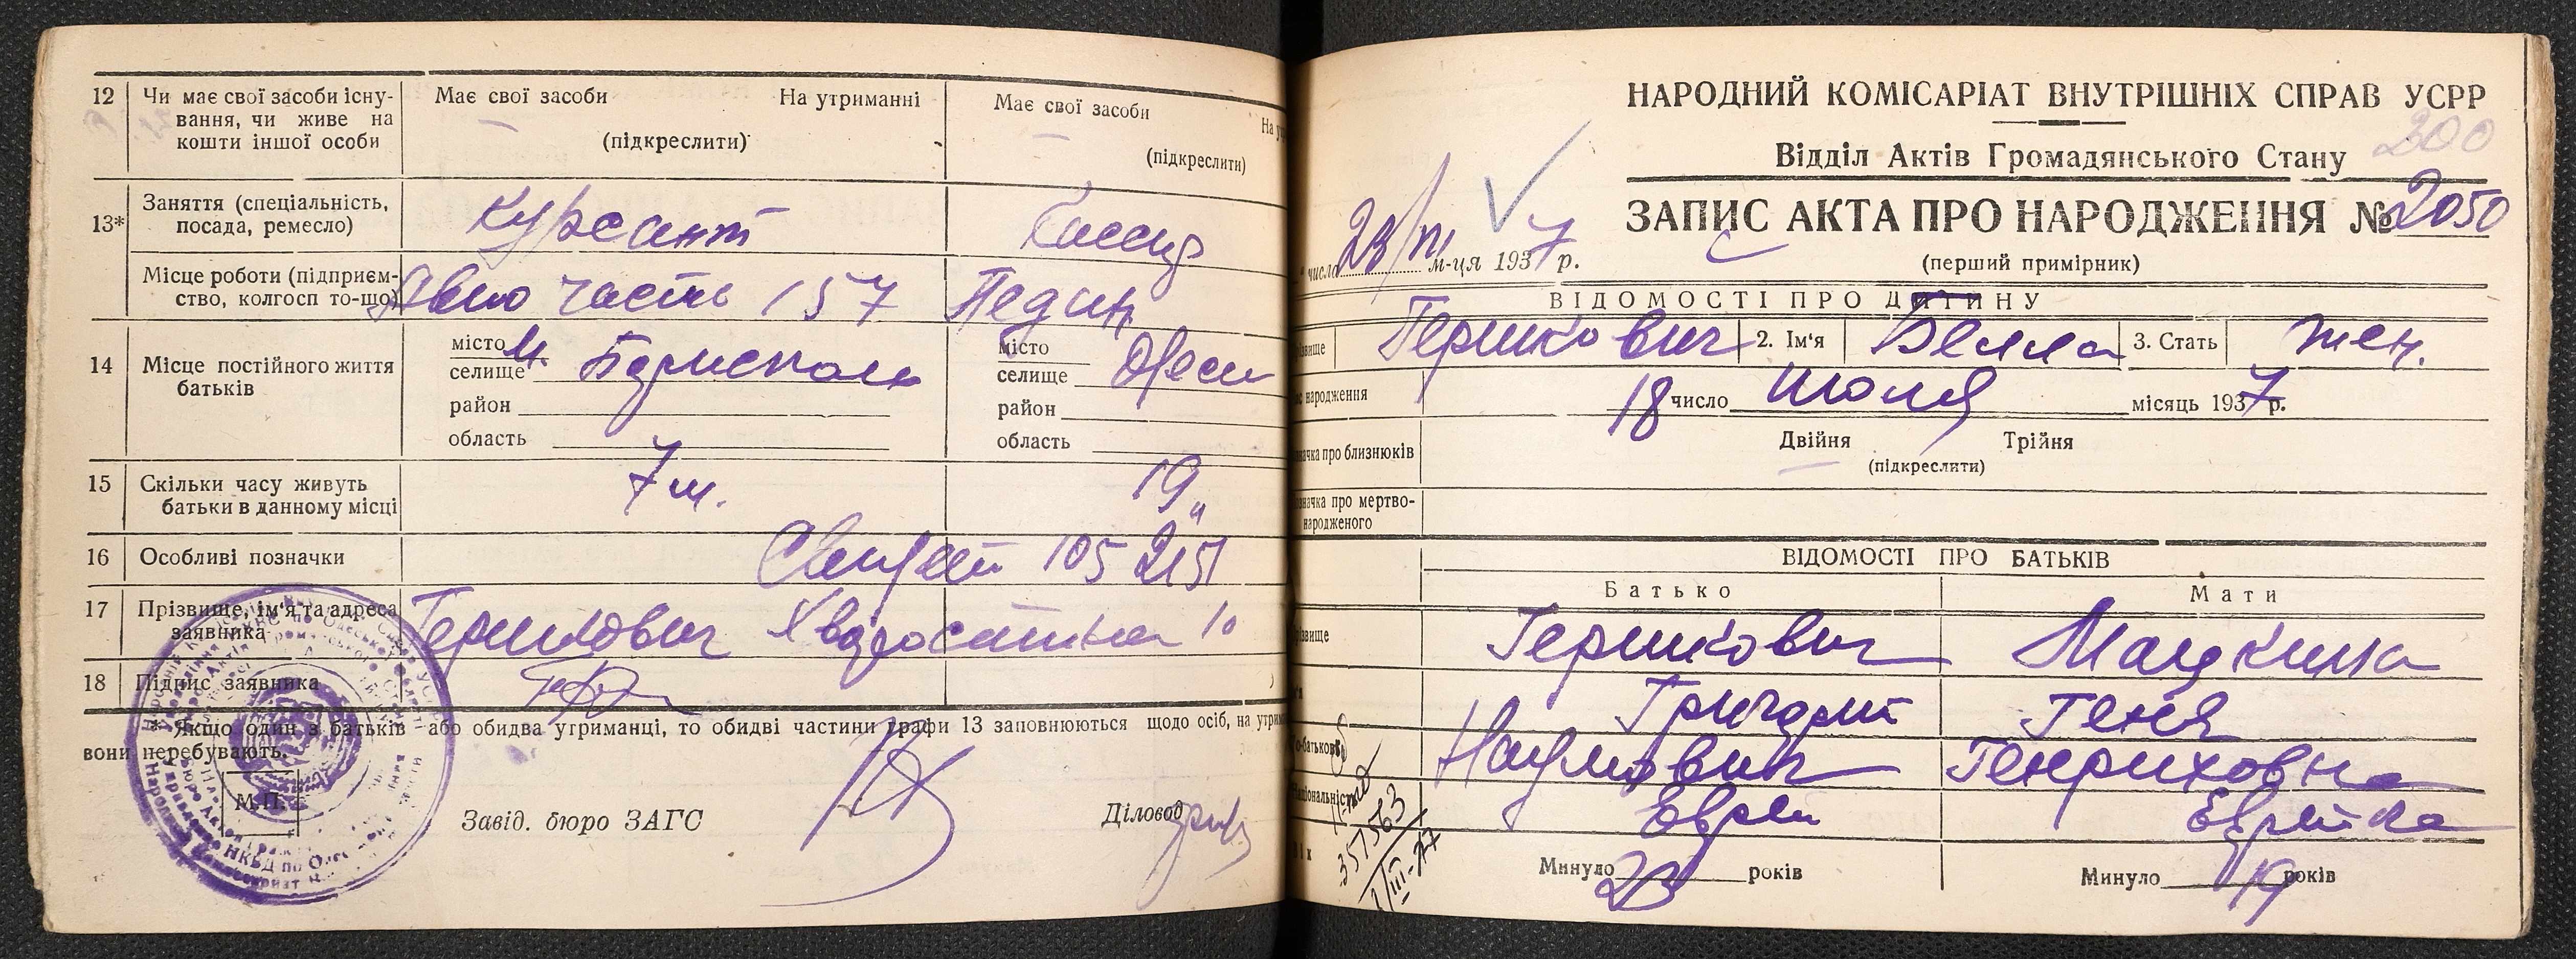 12 Чи має свої засоби існу-
вання, чи живе на
кошти іншої особи
Має свої засоби На утриманні
(підкреслити)
Має свої засоби
На у
(підкреслити)
13* Заняття (спеціальність,
посада, ремесло)
Курсант
Кассир
Місце роботи (підприєм-
ство, колгосп то-що)
Авио часть 157
Педин
14 Місце постійного життя
батьків
місто м. Бориспол
селище
район
область
місто Одеси
селище
район
область
15 Скільки часу живуть
батьки в данному місці
7 м.
19 "
16 Особливі позначки
105 2151
17 Прізвище, ім'я та адреса
заявника
Гершкович 10
18 Підпис заявника
* Якщо один з батьків або обидва утриманці, то обидві частини графи 13 заповнюються щодо осіб, на утрим
вони перебувають.
М.П.
Завід. бюро ЗАГС
Діловод
НАРОДНИЙ КОМІСАРІАТ ВНУТРІШНІХ СПРАВ УСРР
200
Відділ Актів Громадянського Стану
ЗАПИС АКТА ПРО НАРОДЖЕННЯ № 2050
числа 23/VII м-ця 1937 р.
(перший примірник)
ВІДОМОСТІ ПРО ДИТИНУ
Гершкович 2. Ім'я Белла 3. Стать жен.
народження 18 число июля місяць 1937 р.
значка про близнюків
Двійня Трійня
(підкреслити)
значка про мертво-
народженого
ВІДОМОСТІ ПРО БАТЬКІВ
Батько Мати
Гершкович Мацкина
Григорий Геня
по-батькові Наумович Генриховна
Національність Еврей Еврейка
Вік Минуло 23 років Минуло 19 років
357563
1/III-77